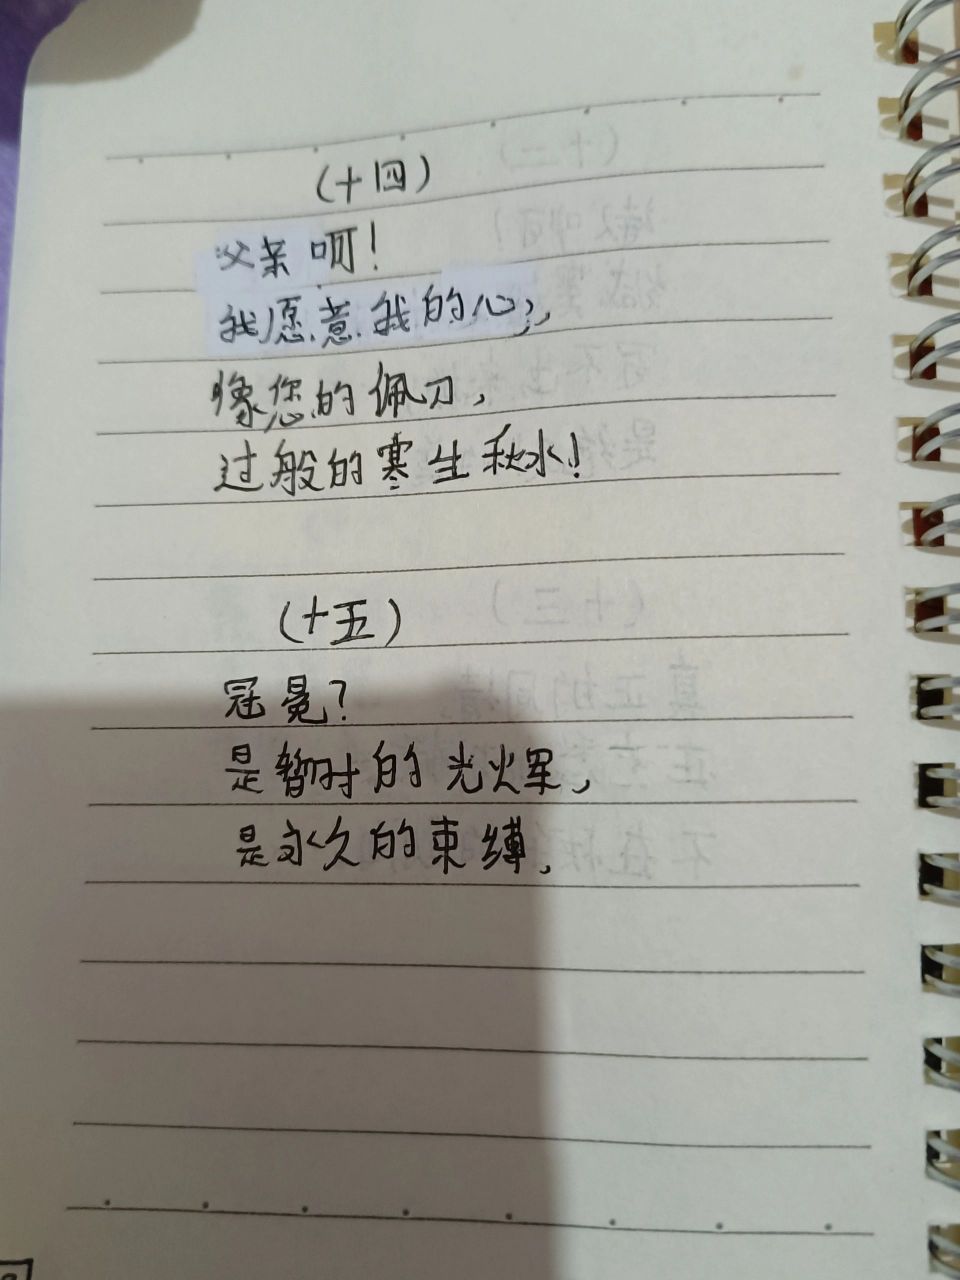 （十四）
父亲呵！
我愿意我的心，
像您的佩刀，
过般的寒生秋水！
（十五）
冠冕？
是暂时的光辉，
是永久的束缚，